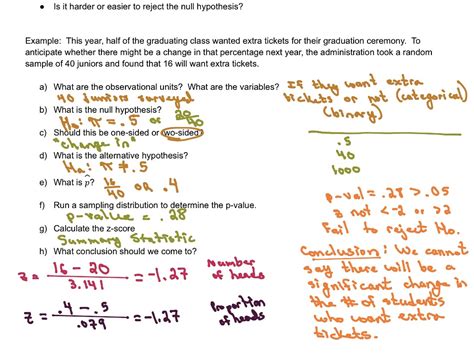 • Is it harder or easier to reject the null hypothesis?
Example: This year, half of the graduating class wanted extra tickets for their graduation ceremony. To
anticipate whether there might be a change in that percentage next year, the administration took a random
sample of 40 juniors and found that 16 will want extra tickets.
a) What are the observational units? What are the variables?
40 juniors surveyed
If they want extra
tickets or not (categorical)
(binary)
b) What is the null hypothesis?
Ho: π = .5 or 20/40
c) Should this be one-sided or two-sided?
"change in"
d) What is the alternative hypothesis?
Ha: π ≠ .5
e) What is p̂? 16/40 or .4
f) Run a sampling distribution to determine the p-value.
p-value = .28
g) Calculate the z-score
Summary Statistic
h) What conclusion should we come to?
z = 16 - 20 / 3.141 = -1.27
Number
of heads
z = .4 - .5 / .079 = -1.27
Proportion
of heads
.5
40
1000
p-val = .28 > .05
z not < -2 or > 2
Fail to reject Ho.
Conclusion: We cannot
say there will be a
significant change in
the # of students
who want extra
tickets.